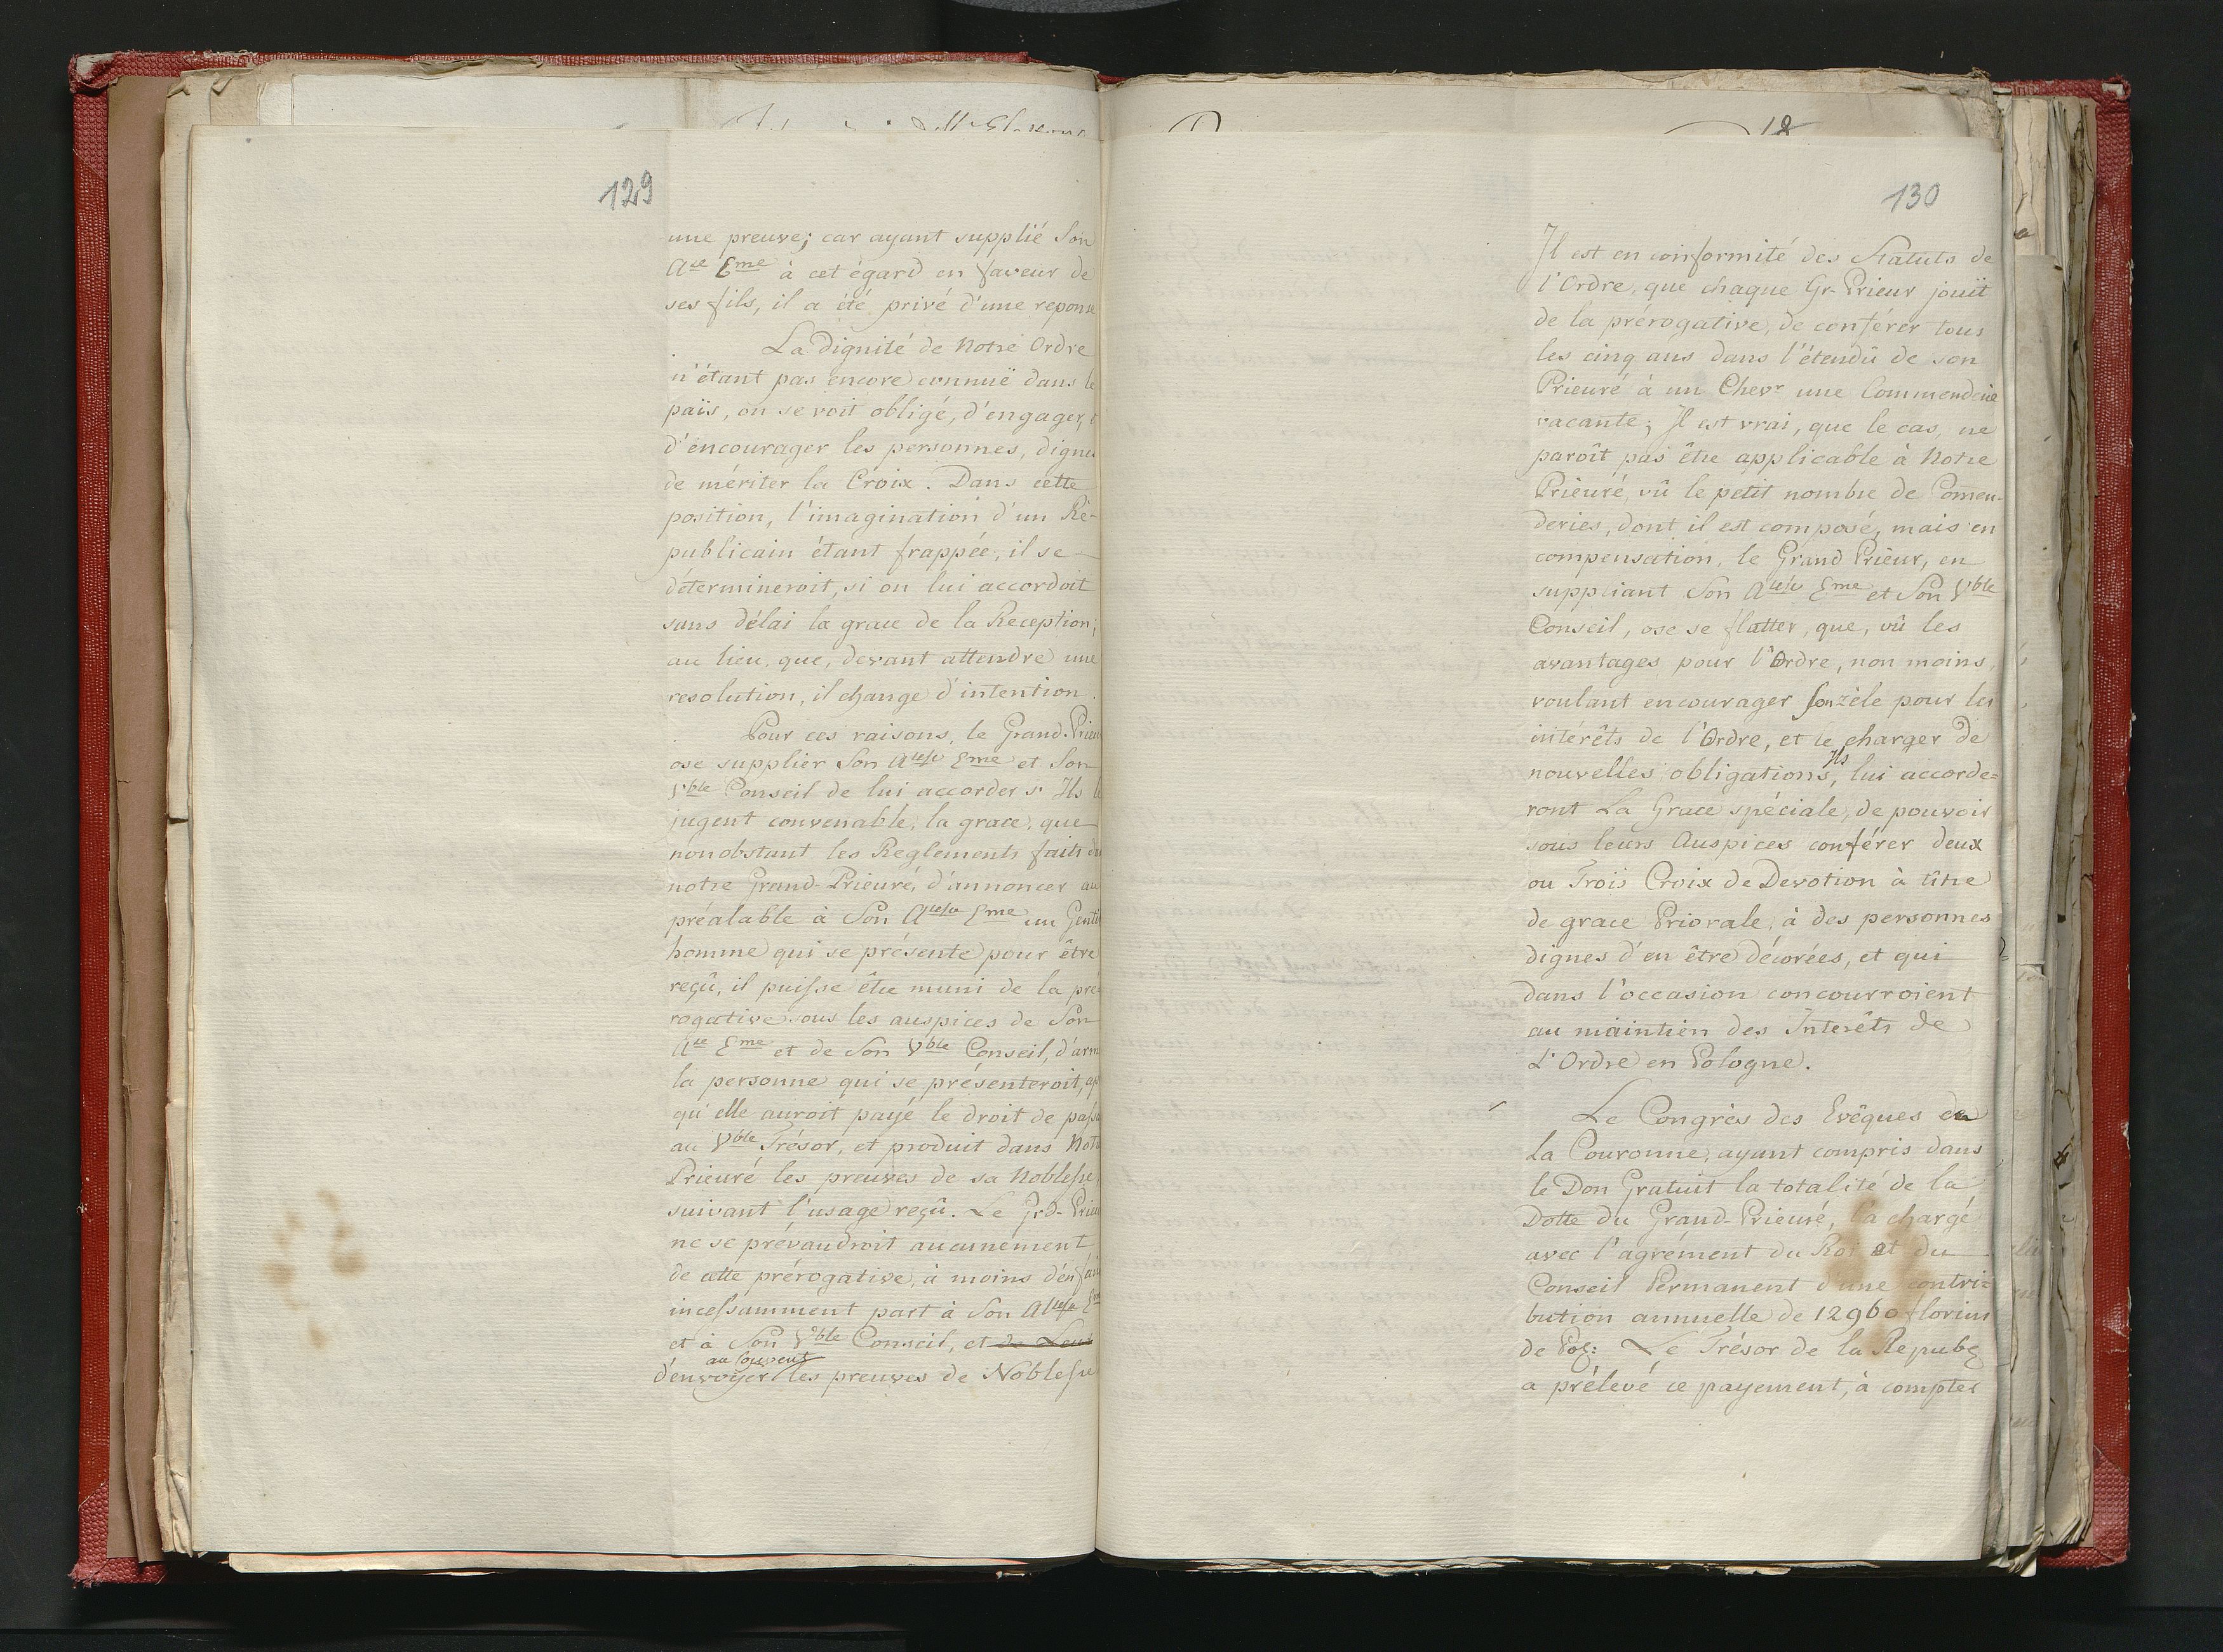 129
une preuve; car ayant supplié Son
Ace Eme à cet égard en faveur de
ses fils, il a été privé d'une reponse
La dignité de Notre Ordre
n'étant pas encore connuë dans le
païs, on se voit obligé, d'engager,
d'encourager les personnes, dignes
de mériter la Croix. Dans cette
position, l'imagination d'un Ré-
publicain étant frappée, il se
détermineroit, si on lui accordoit
sans délai la grace de la Reception;
au lieu, que, devant attendre une
resolution, il change d'intention.
Pour ces raisons, le Grand-Prieu
ose supplier Son Altesse Eme et Son
Vble Conseil de lui accorder s'Ils le
jugent convenable, la grace, que
nonobstant les Reglements faits
notre Grand-Prieuré, d'annoncer au
préalable à Son Altesse Eme un Genti
homme qui se présente pour être
reçû, il puisse être muni de la pré
rogative sous les auspices de Son
Ace Eme et de Son Vble Conseil, d'arm
la personne qui se présenteroit, ap
qu'elle auroit payé le droit de passa
au Vble Trésor, et produit dans Notr
Prieuré les preuves de sa Noblesse,
suivant l'usage reçû. Le Grd-Prieu
ne se prévaudroit aucunement
de cette prérogative, à moins d'en fai
incessamment part à Son Altesse Em
et à Son Vble Conseil, et de Leur
au Couvent
d'envoyer les preuves de Noblesse
18
130
Il est en conformité des Statuts de
l'Ordre, que chaque Gr-Prieur jouït
de la prérogative, de conférer tous
les cinq ans dans l'étendü de son
Prieuré à un Chevr une Commenderie
vacante; Il est vrai, que le cas, ne
paroît pas être applicable à Notre
Prieuré, vû le petit nombre de Commen-
deries, dont il est composé, mais en
compensation, le Grand Prieur, en
suppliant Son Altesse Eme et Son Vble
Conseil, ose se flatter, que, vû les
avantages pour l'Ordre, non moins,
voulant encourager son zèle pour les
intérêts de l'Ordre, et le charger de
Ils
nouvelles obligations, lui accorde=
ront La Grace spéciale, de pouvoir
sous leurs Auspices conférer deux
ou Trois Croix de Devotion à titre
de grace Priorale, à des personnes
dignes d'en être décorées, et qui
dans l'occasion concourroient
au maintien des Interêts de
L'Ordre en Pologne.
Le Congrès des Evêques de
la Couronne, ayant compris dans
le Don Gratuit la totalité de la
Dotte du Grand-Prieuré, l'a chargé
avec l'agrément du Roi et du
Conseil Permanent d'une contri=
bution annuelle de 12960 florins
de Pol: Le Trésor de la Republ
a prélevé ce payement, à compter